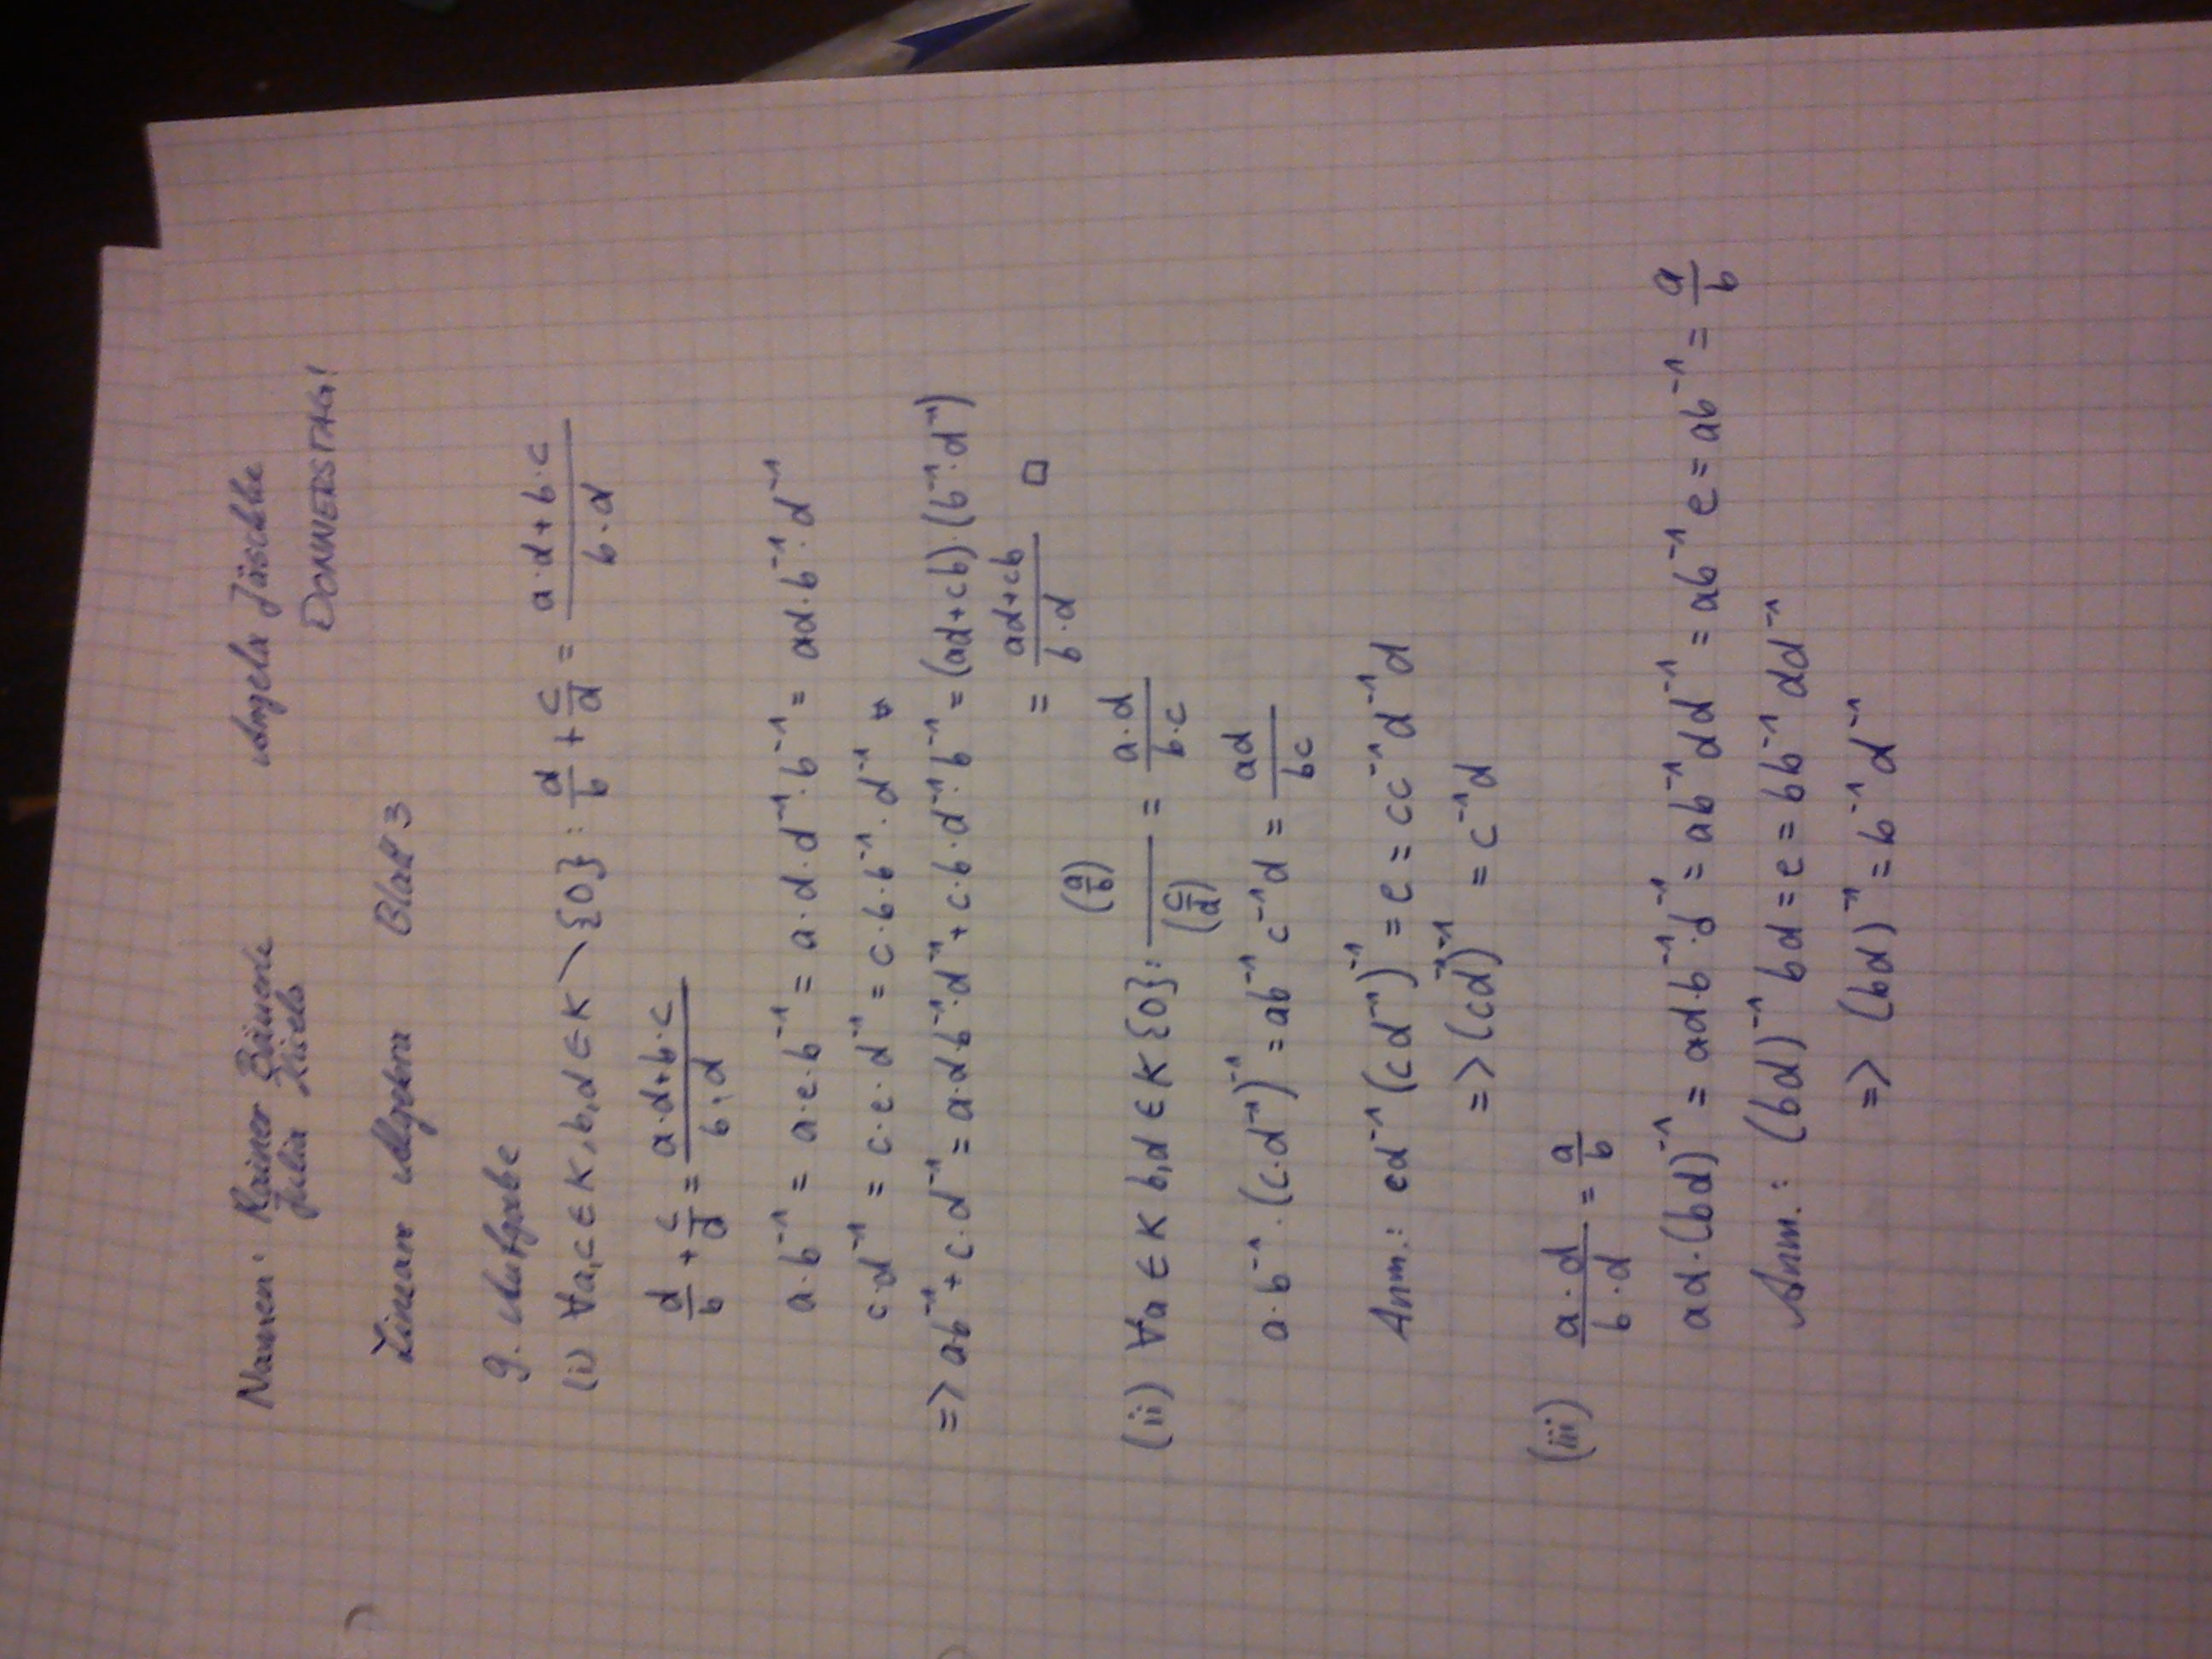 Namen: Rainer Bäuerle Angela Jäschke
Julia Kiele DONNERSTAG!
Lineare Algebra Blatt 3
9. Aufgabe
(i) ∀a,c ∈ K, b,d ∈ K \ {0} : a/b + c/d = (a·d+b·c)/(b·d)
a/b + c/d = (a·d+b·c)/(b·d)
a·b⁻¹ = a·e·b⁻¹ = a·d·d⁻¹·b⁻¹ = ad·b⁻¹·d⁻¹
c·d⁻¹ = c·e·d⁻¹ = c·b·b⁻¹·d⁻¹
=> ab⁻¹ + c·d⁻¹ = a·d b⁻¹·d⁻¹ + c·b·d⁻¹b⁻¹ = (ad+cb)·(b⁻¹·d⁻¹)
= (ad+cb)/(b·d) □
(ii) ∀a ∈ K b,d ∈ K {0}: (a/b)/(c/d) = (a·d)/(b·c)
a·b⁻¹·(c·d⁻¹)⁻¹ = ab⁻¹c⁻¹d = ad/bc
Anm.: cd⁻¹(cd⁻¹)⁻¹ = e = cc⁻¹d⁻¹d
=> (cd⁻¹)⁻¹ = c⁻¹d
(iii) (a·d)/(b·d) = a/b
ad·(bd)⁻¹ = ad·b⁻¹·d⁻¹ = ab⁻¹dd⁻¹ = ab⁻¹e = ab⁻¹ = a/b
Anm.: (bd)⁻¹bd = e = bb⁻¹dd⁻¹
=> (bd)⁻¹ = b⁻¹d⁻¹